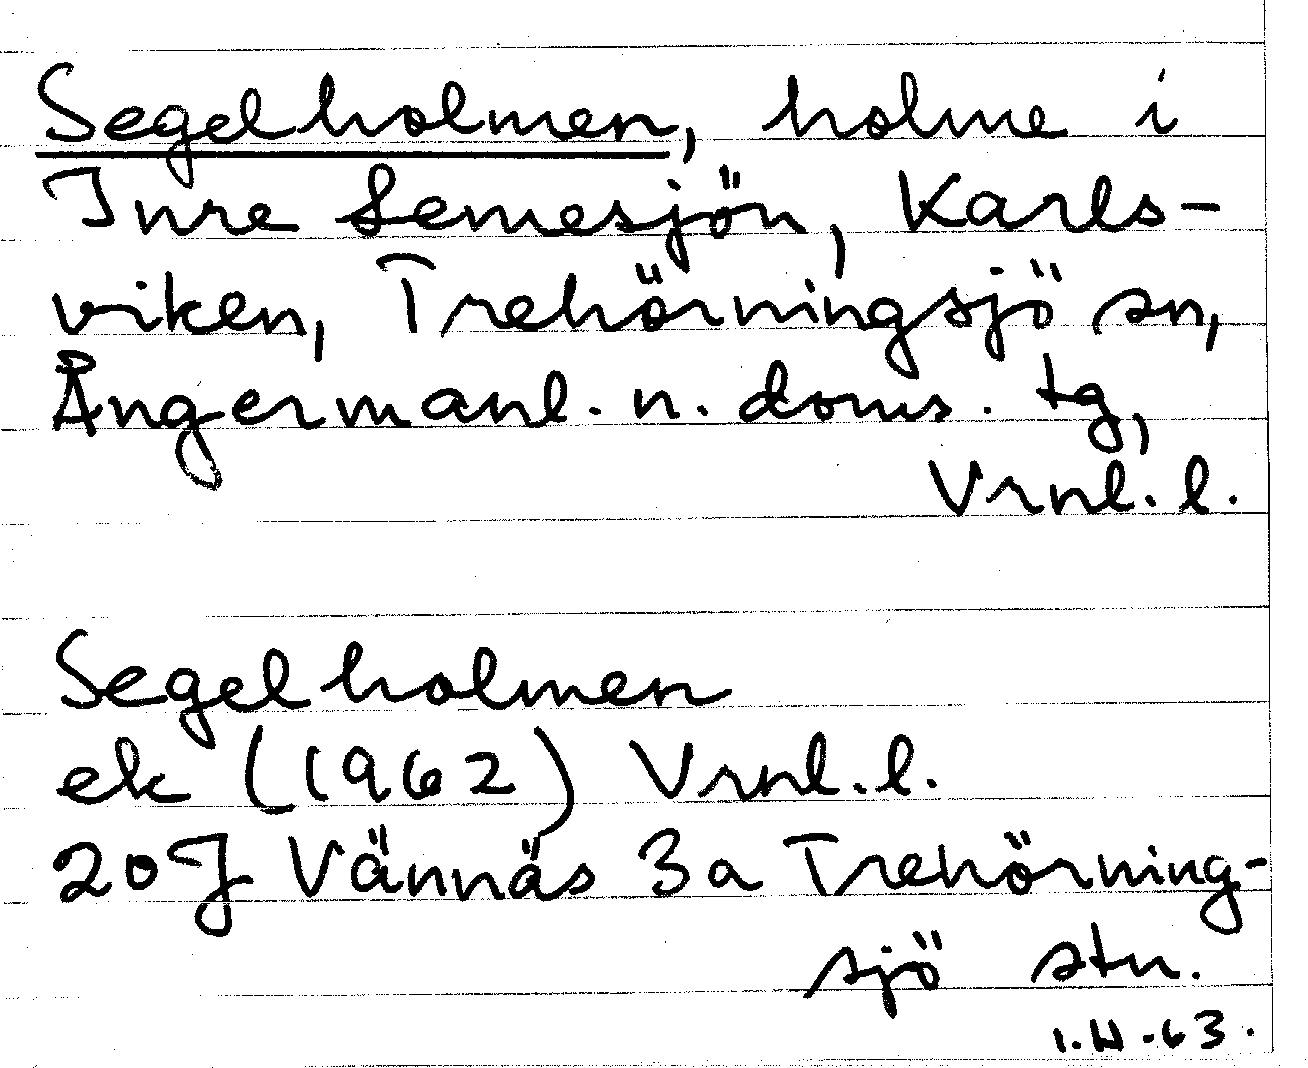 Segelholmen, holme i
Inre Lemesjön, Karls-
viken, Trehörningsjö sn,
Ångermanl. n. doms. tg,
Vrnl. l.
Segelholmen
ek (1962) Vrnl. l.
20 J Vännäs 3a Trehörning-
sjö stn.